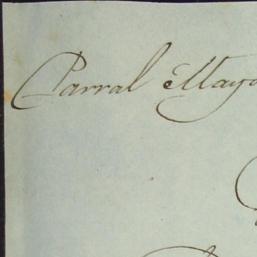 Parral Mayo